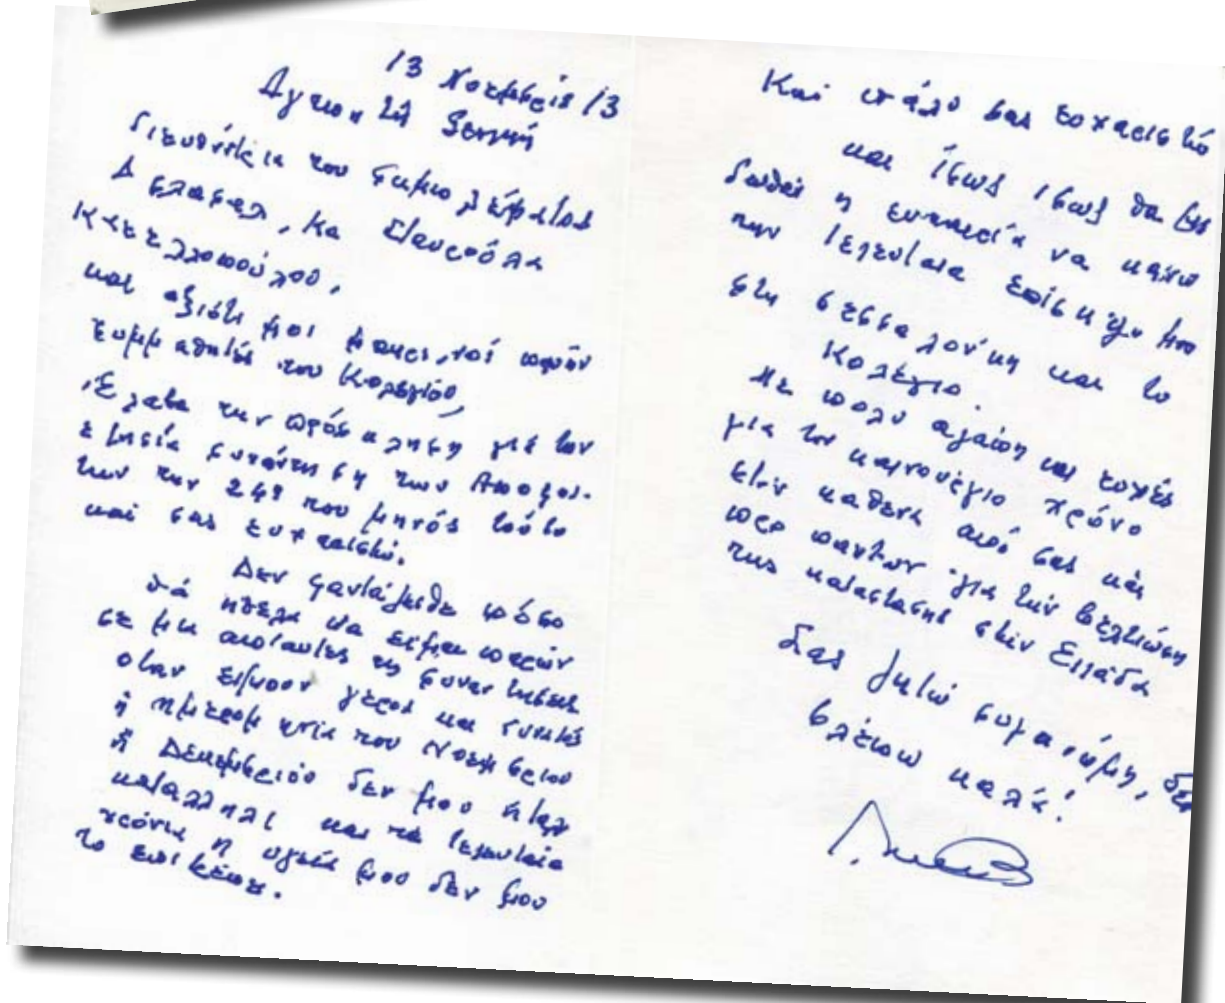 13 Νοεμβρίο 13
Αγαπητή
του
, Κα Σταυρούλα
,
και αξιότιμοι μακρινοί πρώην
συμμαθητές του Κολεγίου,
Έλαβα την πρόσκληση για την
ετησία συνάντηση των Αποφοί-
των την 24η του μηνός τούτο
και σας ευχαριστώ.
Δεν φαντάζεσθε πόσο
θά ήθελα να είμαι παρών
σε μια απο αυτές τις συναντήσεις
όταν είμουν γερος και συνηθ
ή ημερομηνία του Νοεμβριου
ή Δεκεμβρίου δεν μου ήταν
κατάλληλη και τα τελευταία
χρόνια η υγεία μου δεν μου
το επιτρέπει.
Και πάλι σας ευχαριστώ
και ίσως ίσως θα μου
δωθεί η ευκαιρία να κάνω
την τελευταια επίσκεψη μου
στη Θεσσαλονίκη και το
Κολέγιο.
Με πολυ αγάπη και ευχές
για τον καινουέγιο χρόνο
στον καθενα από σας και
προ παντων για την βελτίωση
της καταστασης στην Ελλάδα
Σας ζητώ συγνώμη, δεν
βλέπω καλά!